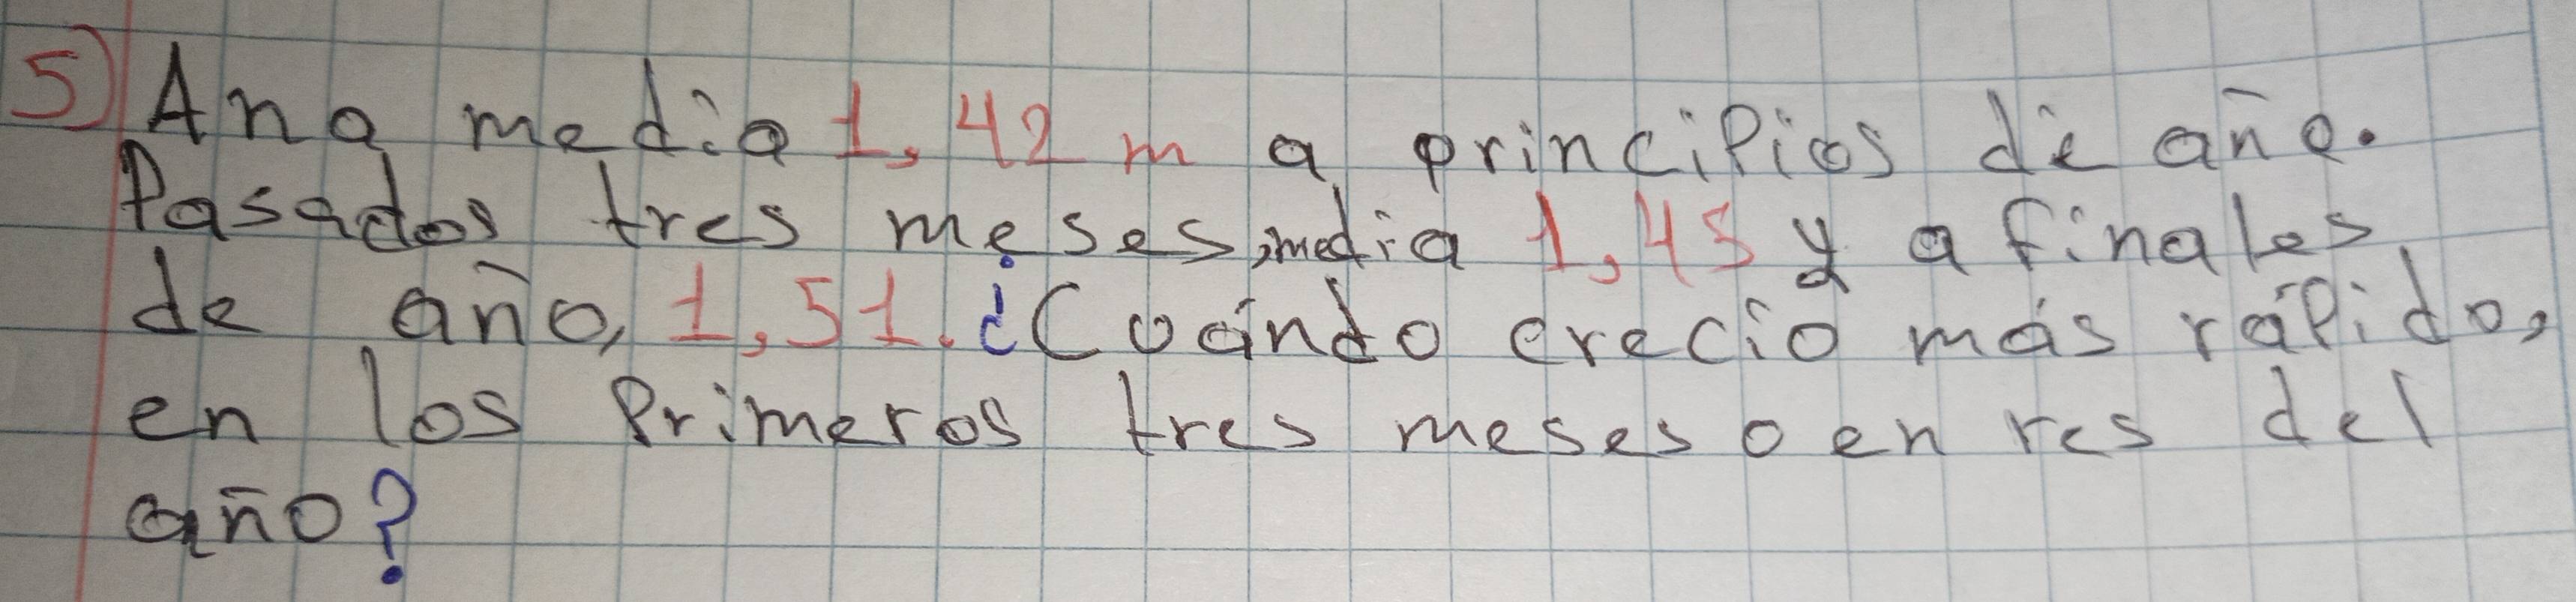 5) Ana media 1,42 m a principios de año.
Pasados tres meses, media 1,45 y a finales
de año, 1,51. ¿Cuándo creció más rápido,
en los primeros tres meses o en res del
año?